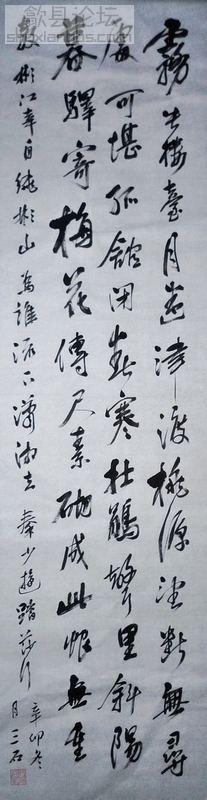 歙县论坛
霧失樓臺月迷津渡桃源望斷無尋
處可堪孤館閉春寒杜鵑聲里斜陽
暮驛寄梅花傳尺素砌成此恨無重
數郴江幸自绕郴山為誰流下瀟湘去 秦少遊踏莎行 辛卯冬
月三石